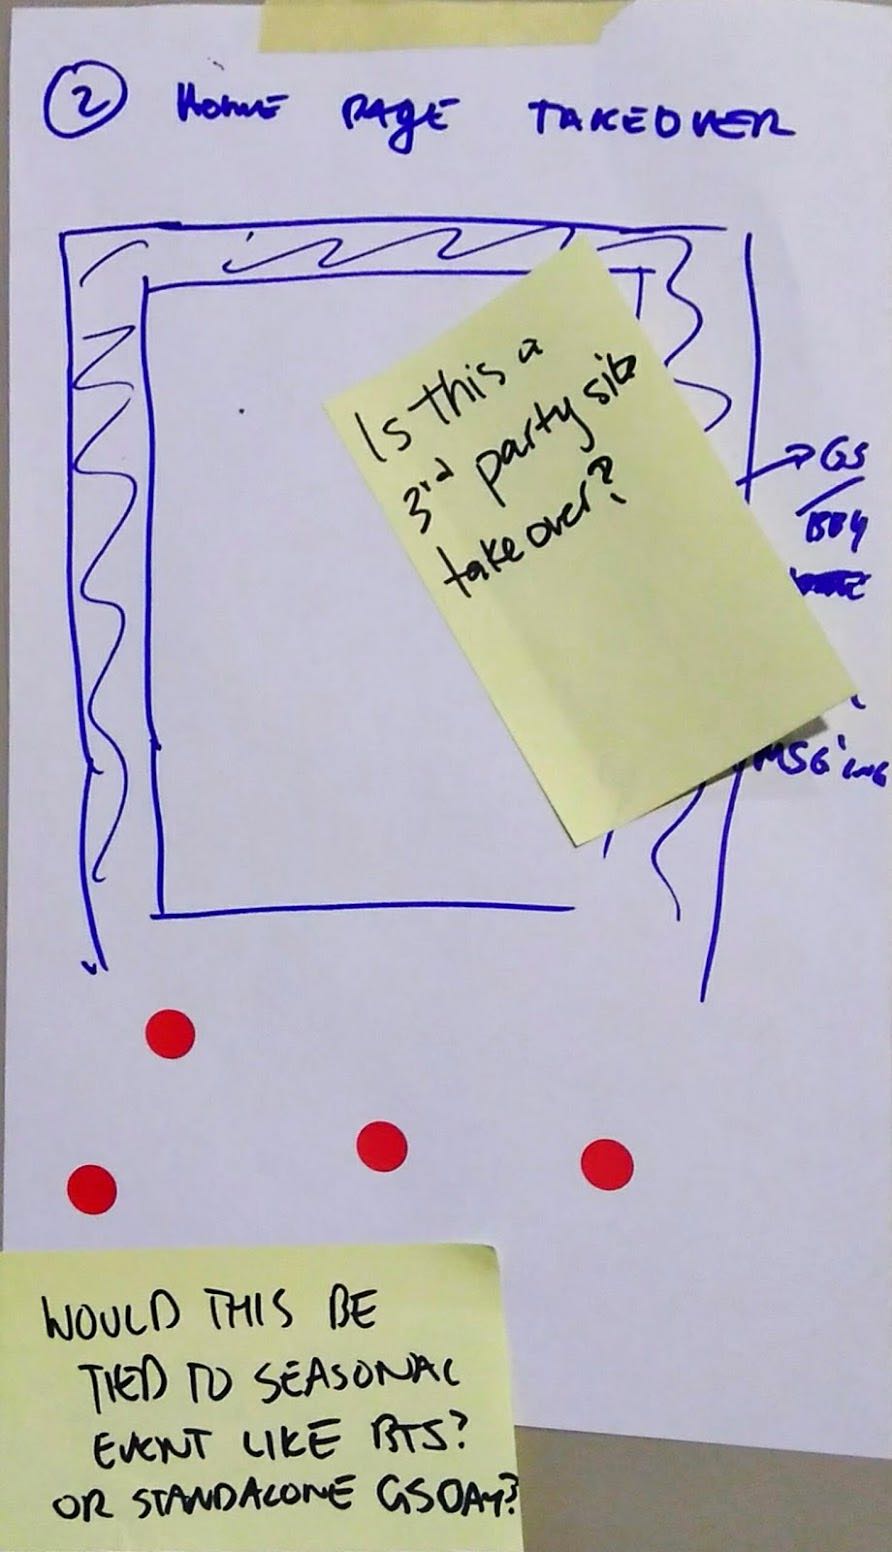 2 HOME PAGE TAKEOVER
Is this a
3rd party site
takeover?
GS
BBY
MSG'ING
WOULD THIS BE
TIED TO SEASONAL
EVENT LIKE BTS?
OR STANDALONE GSDAY?